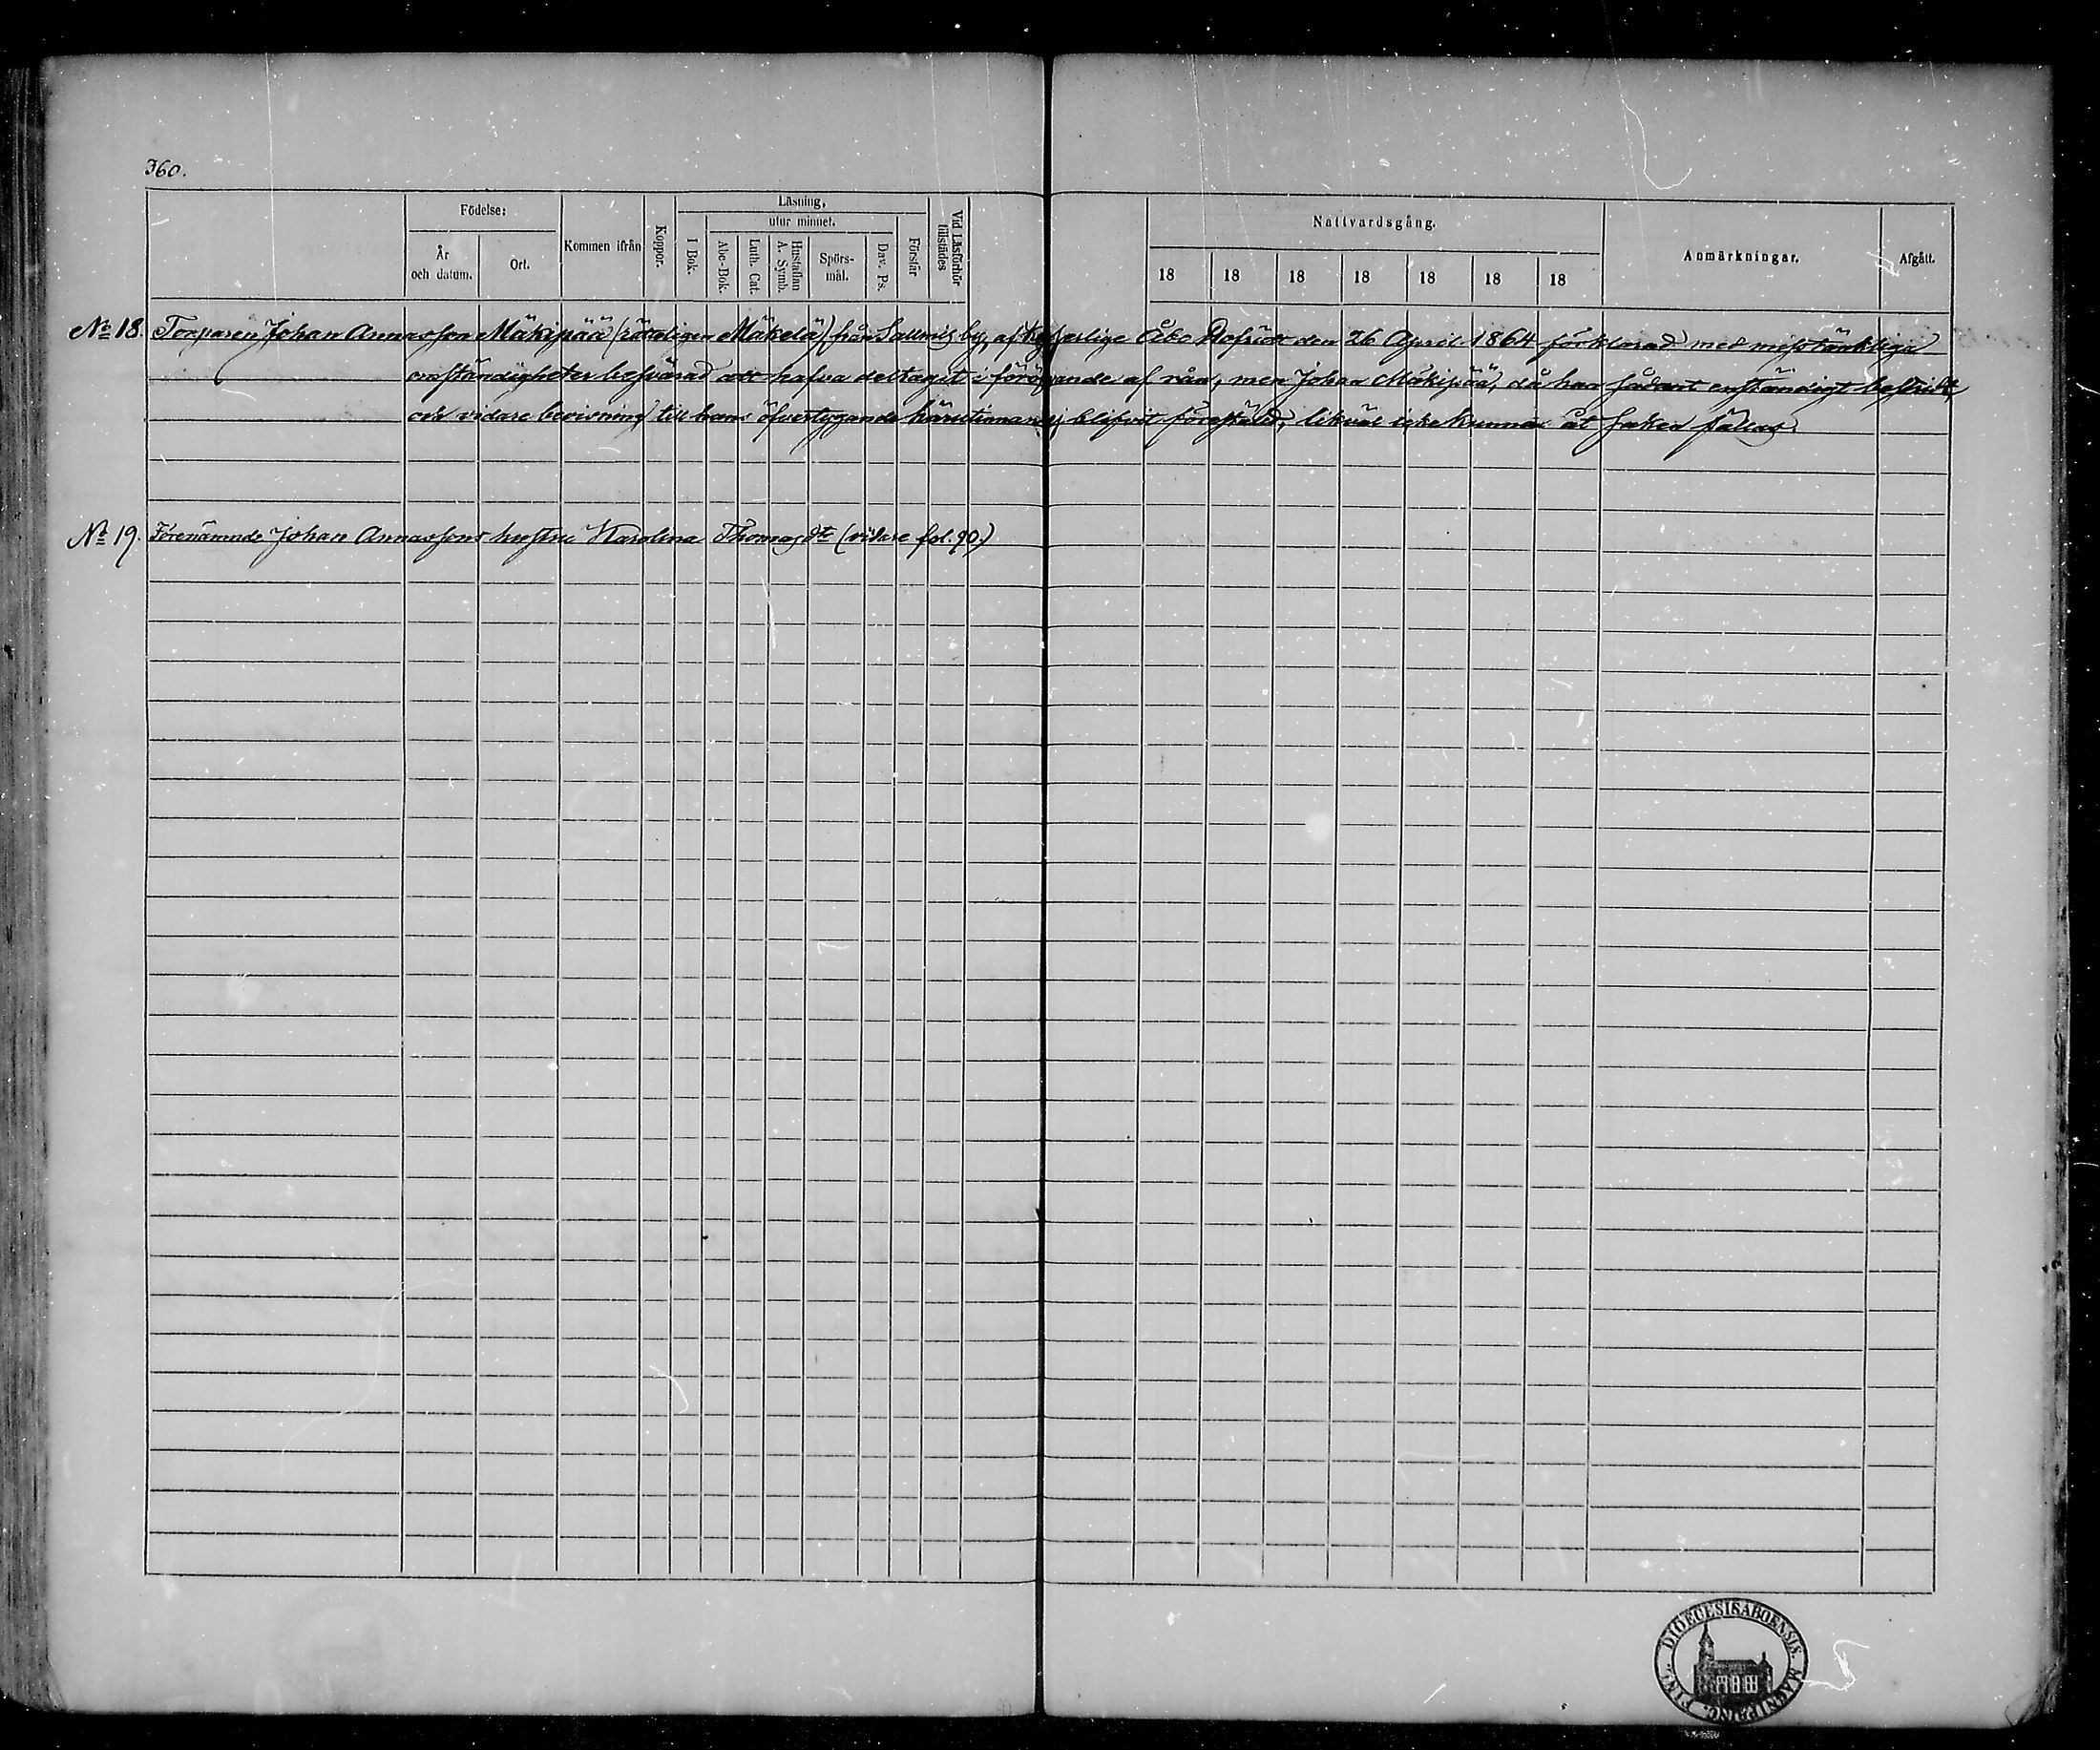 360.
Födelse:
År och datum.
Ort.
Kommen ifrån
Koppor.
Läsning,
utur minnet.
I Bok.
Abc-Bok.
Luth. Cat.
Hustaflan A. Symb.
Spörs-mål.
Dav. Ps.
Förstår
Vid Läsförhör tillstädes
Nattvardsgång.
18 18 18 18 18 18 18
Anmärkningar.
Afgått.
No 18. Torparen Johan Annasson Mäkipää (rätteligen Mäkelä) från Sallmis by, af Kejserlige Åbo Hofrätt den 26 April 1864 förklarad med misstänkliga
omständigheter besvärad att hafva deltagit i föröfvande af rån, men Johan Mäkipää, då han sådant enständigt bestridt,
och vidare bevisning till hans öfvertygande härutinnan ej blifvit förestäld, likväl icke kunnat åt saken fällas.
No 19. Förenämnde Johan Annassons hustru Karolina Thomasdtr (vidare fol. 90.)
DIOECESIS ABOENSIS. MAGNI PRINC. FINL.